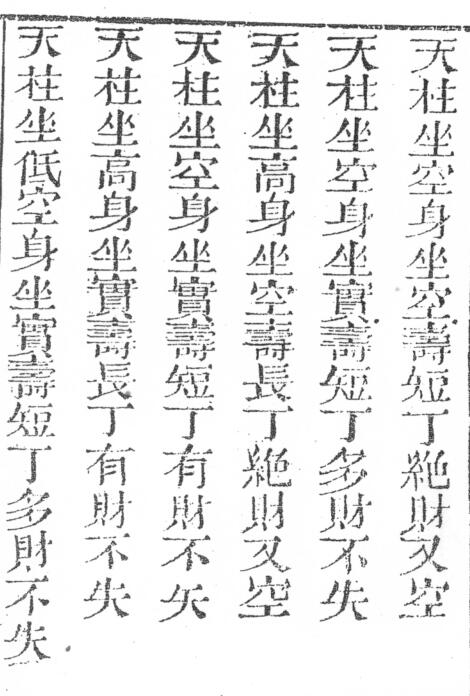 天柱坐空身坐空壽短丁絶財又空
天柱坐空身坐實壽短丁多財不失
天柱坐高身坐空壽長丁絶財又空
天柱坐空身坐實壽短丁有財不矢
天柱坐高身坐實壽長丁有財不失
天柱坐低空身坐實壽短丁多財不失